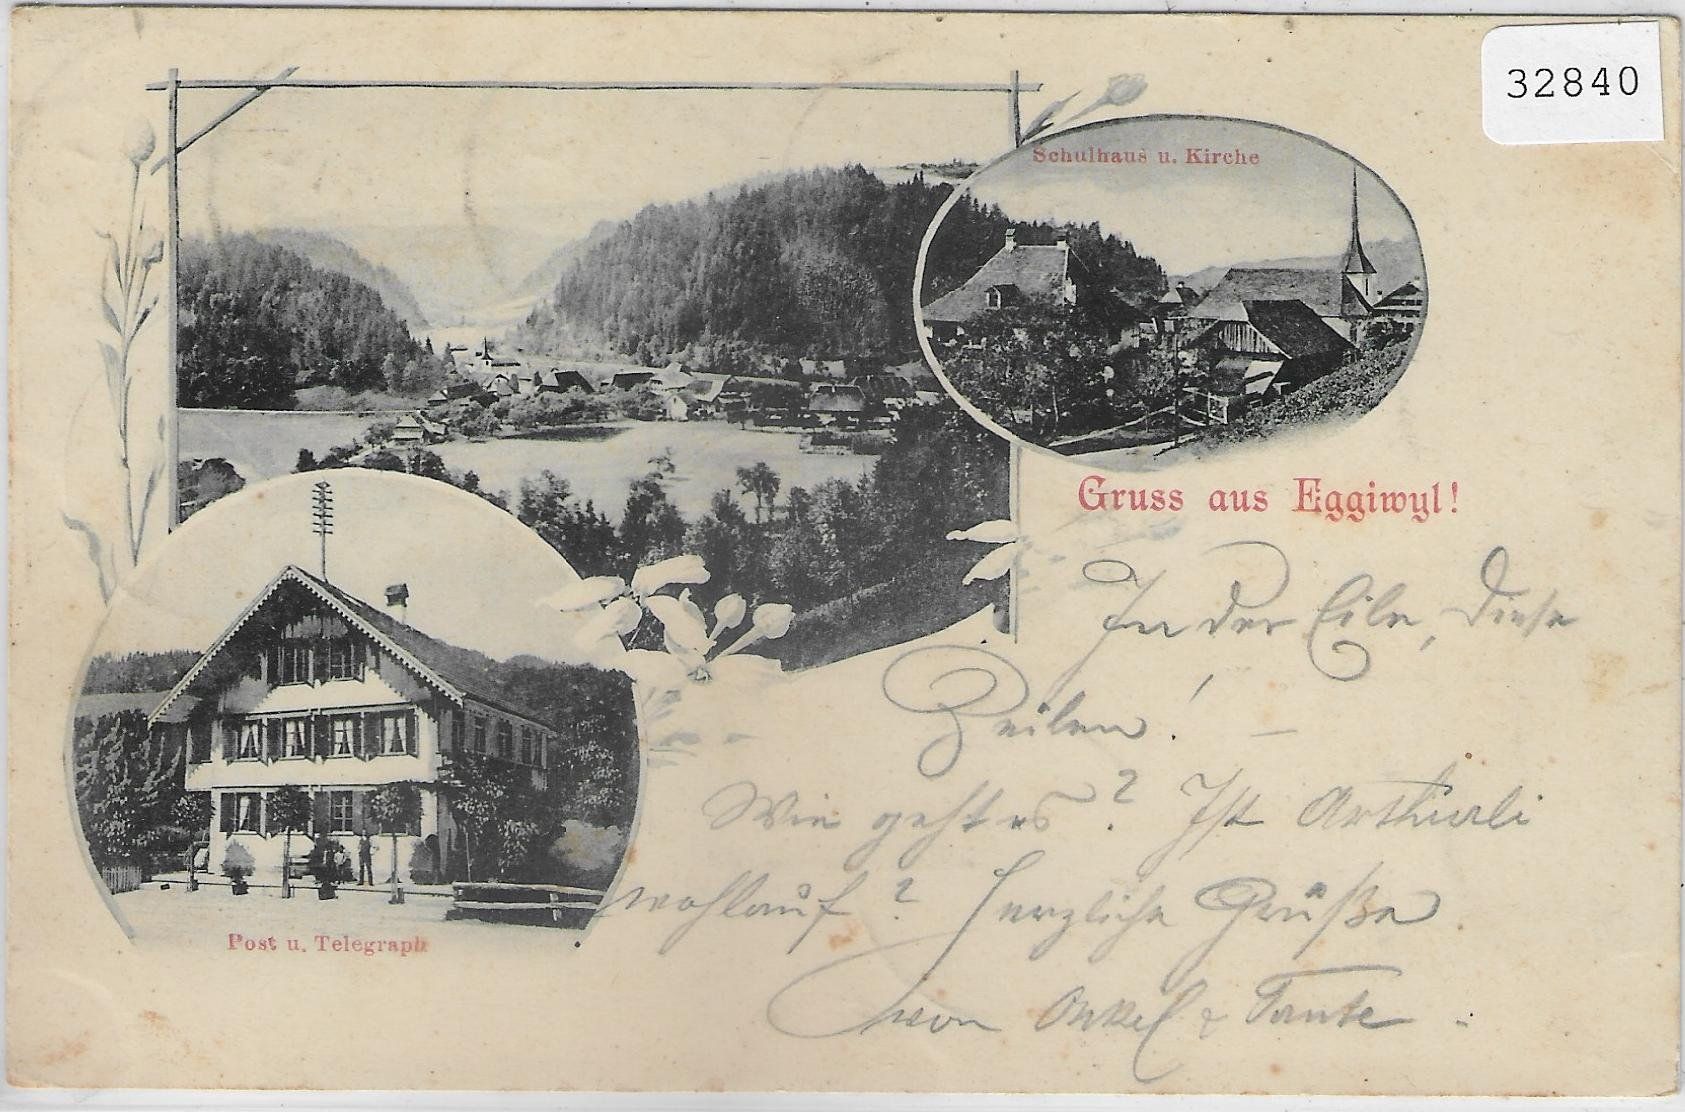 32840
Schulhaus u. Kirche
Gruss aus Eggiwyl!
In der Eile, diese
Zeilen! —
Wie geht es? Ist Arthurli
wohlauf? Herzliche Grüße
von Onkel & Tante.
Post u. Telegraph